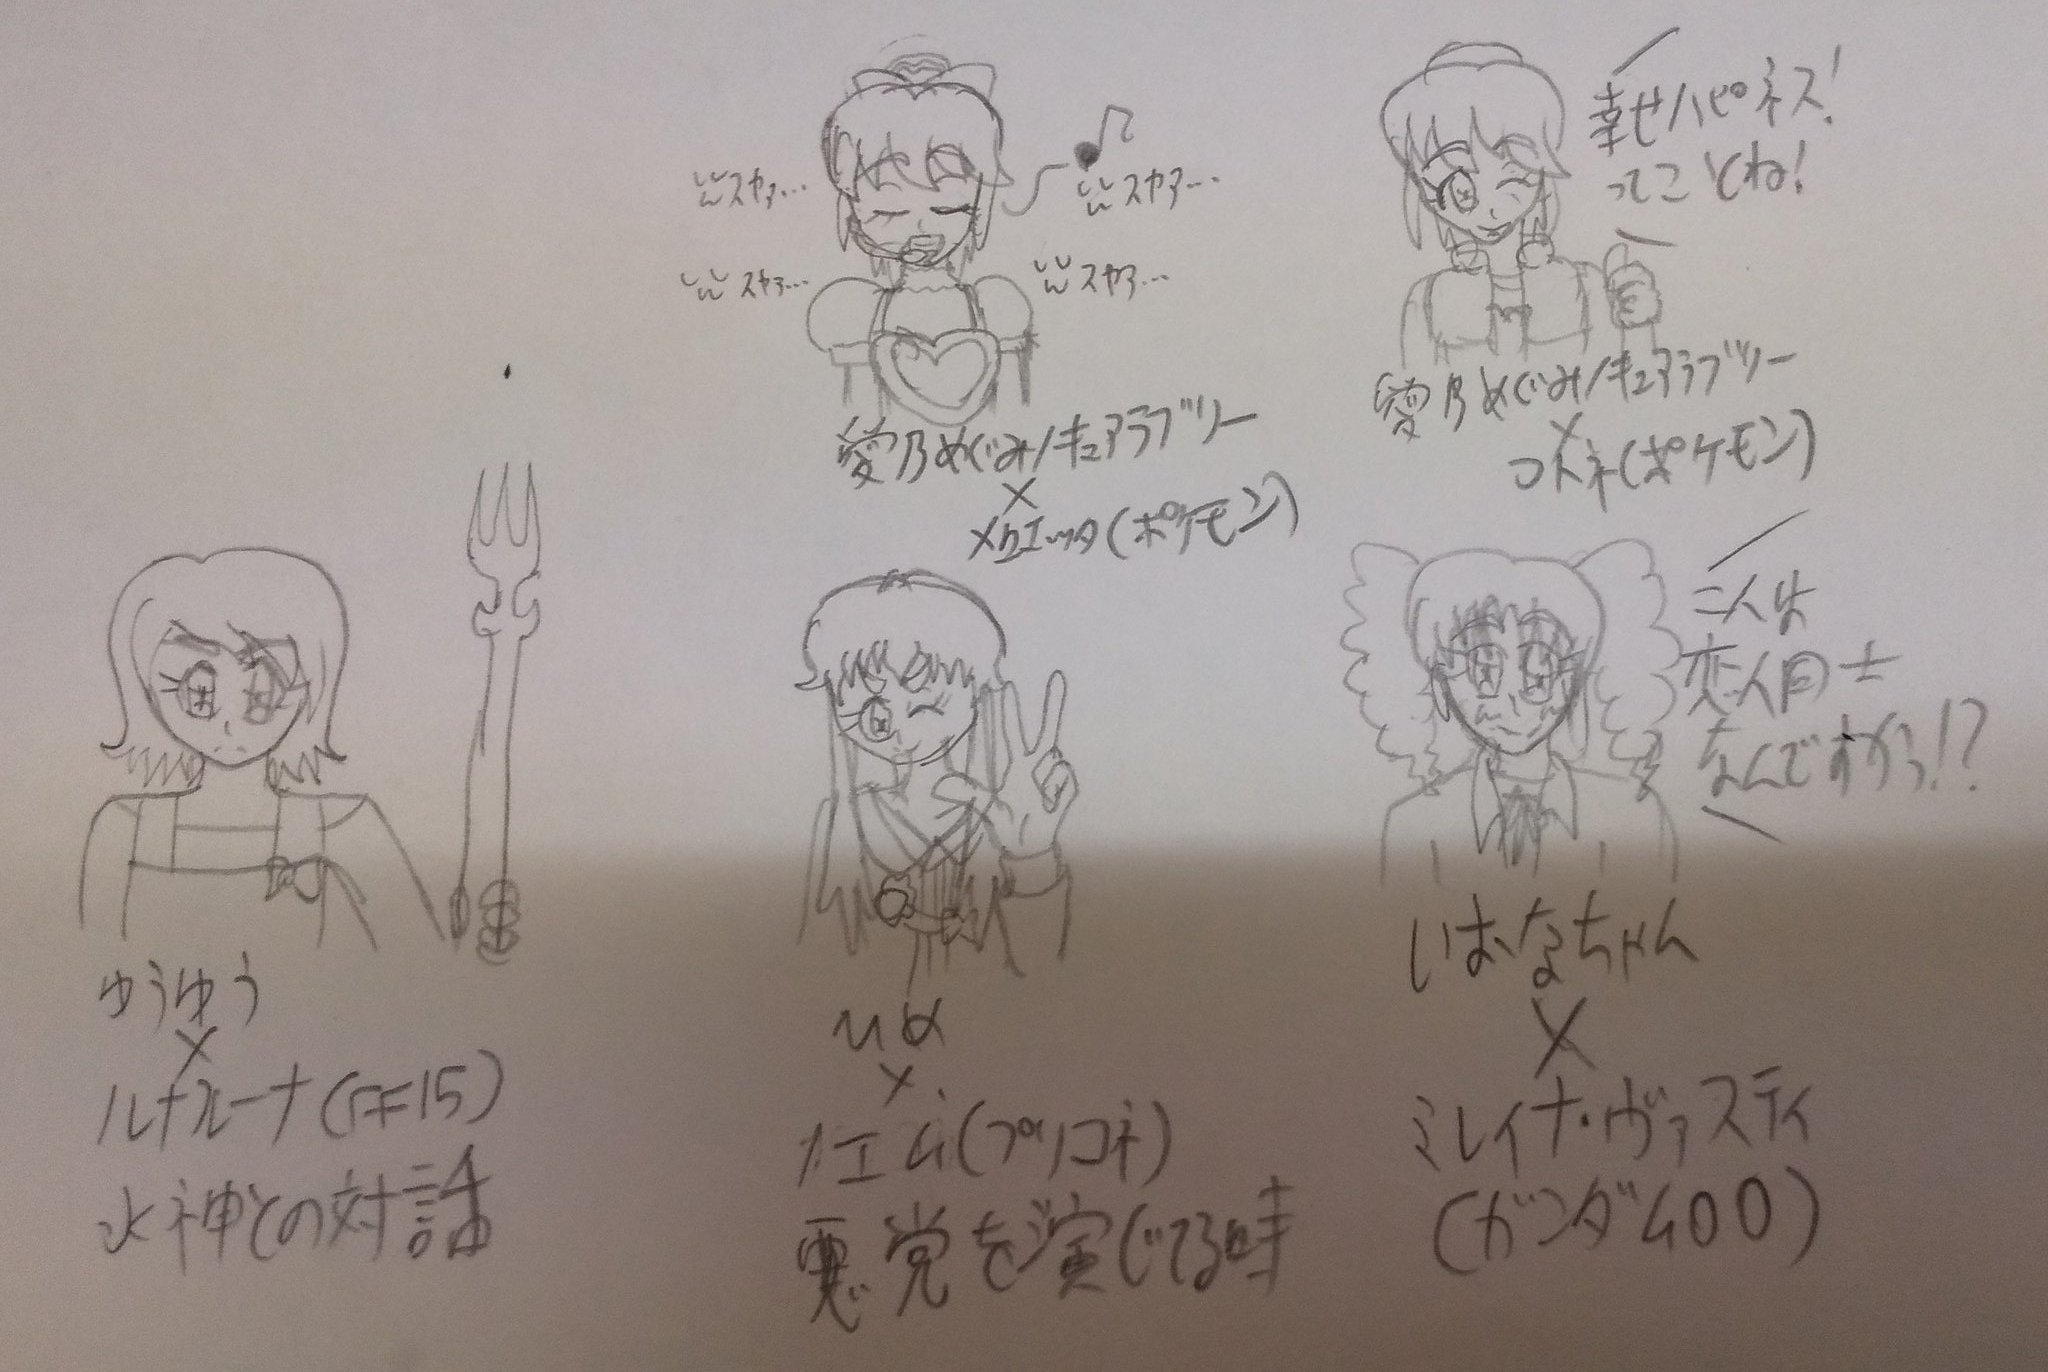 スヤァ…
スヤァ…
スヤァ…
スヤァ…
愛乃めぐみ/キュアラブリー
×
メロエッタ(ポケモン)
幸せハピネス!
ってことね!
愛乃めぐみ/キュアラブリー
×
コトネ(ポケモン)
ゆうゆう
×
ルナルーナ(
水神との対話
ひめ
×
カエム(プリコネ)
悪党を演じてる時
二人は
恋人同士
なんですかっ!?
いおなちゃん
×
ミレイナ・ヴァスティ
(ガンダム00)